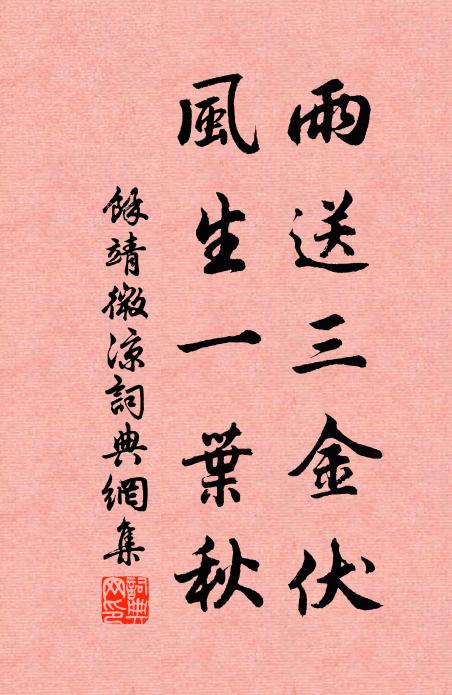 雨送三金伏
風生一葉秋
餘靖微涼詞典網集
詞典網印